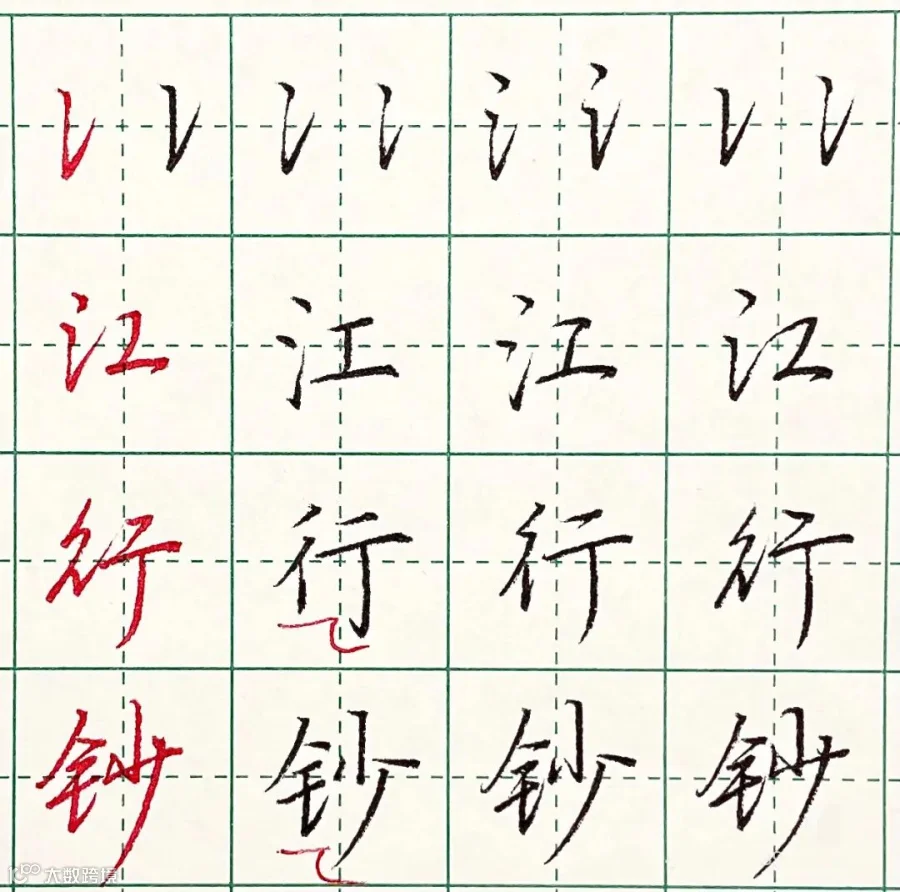 江 江 江 江
行 行 行 行
钞 钞 钞 钞
大数跨境